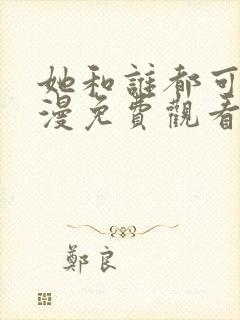 她和誰都可
漫免費觀看
鄭良